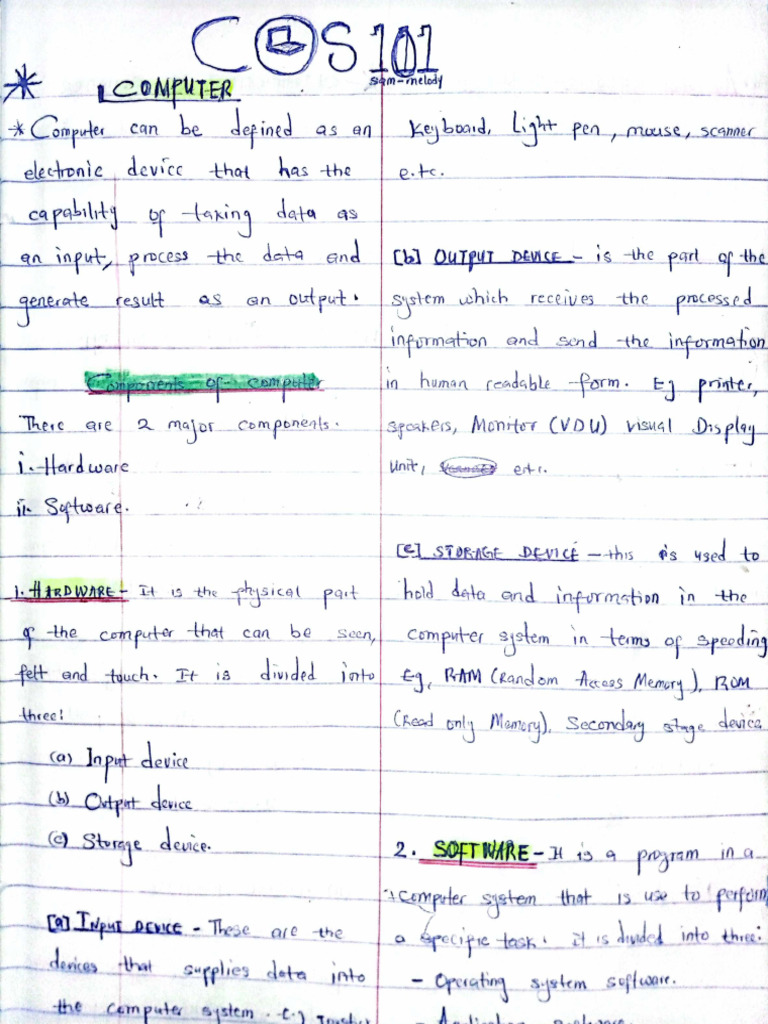 COS 101
sam-melody
* COMPUTER
* Computer can be defined as an
electronic device that has the
capability of taking data as
an input, process the data and
generate result as an output.
Components of computer
There are 2 major components.
i. Hardware
ii. Software.
1. HARDWARE - It is the physical part
of the computer that can be seen,
felt and touch. It is divided into
three:
(a) Input device
(b) Output device
(c) Storage device.
[a] INPUT DEVICE - These are the
devices that supplies data into
the computer system. E.g
Keyboard, Light pen, mouse, scanner
e.t.c.
[b] OUTPUT DEVICE - is the part of the
system which receives the processed
information and send the information
in human readable form. Eg printer,
speakers, Monitor (VDU) visual Display
Unit, etc.
[c] STORAGE DEVICE - this is used to
hold data and information in the
computer system in terms of speeding
Eg, RAM (Random Access Memory), ROM
(Read only Memory), Secondary stage device
2. SOFTWARE - It is a program in a
computer system that is use to perform
a specific task. it is divided into three:
- Operating system software.
- Application software.